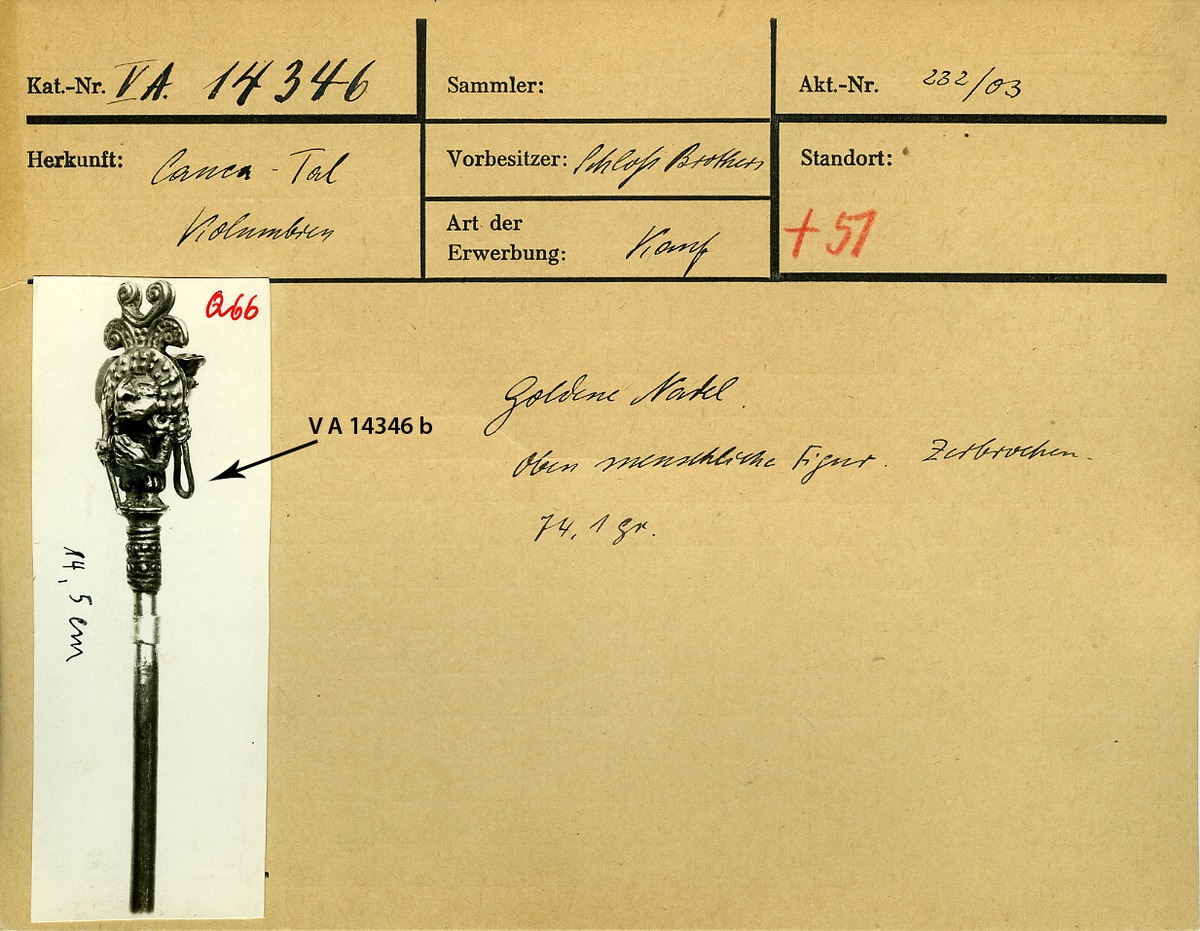 Kat.-Nr. V A. 14346
Sammler:
Akt.-Nr. 232/03
Herkunft: Cauca-Tal
Kolumbien
Vorbesitzer: Schloß Brothers
Art der
Erwerbung: Kauf
Standort:
+51
Q66
V A 14346 b
14,5 cm
Goldene Nadel.
Oben menschliche Figur. Zerbrochen.
74,1 gr.